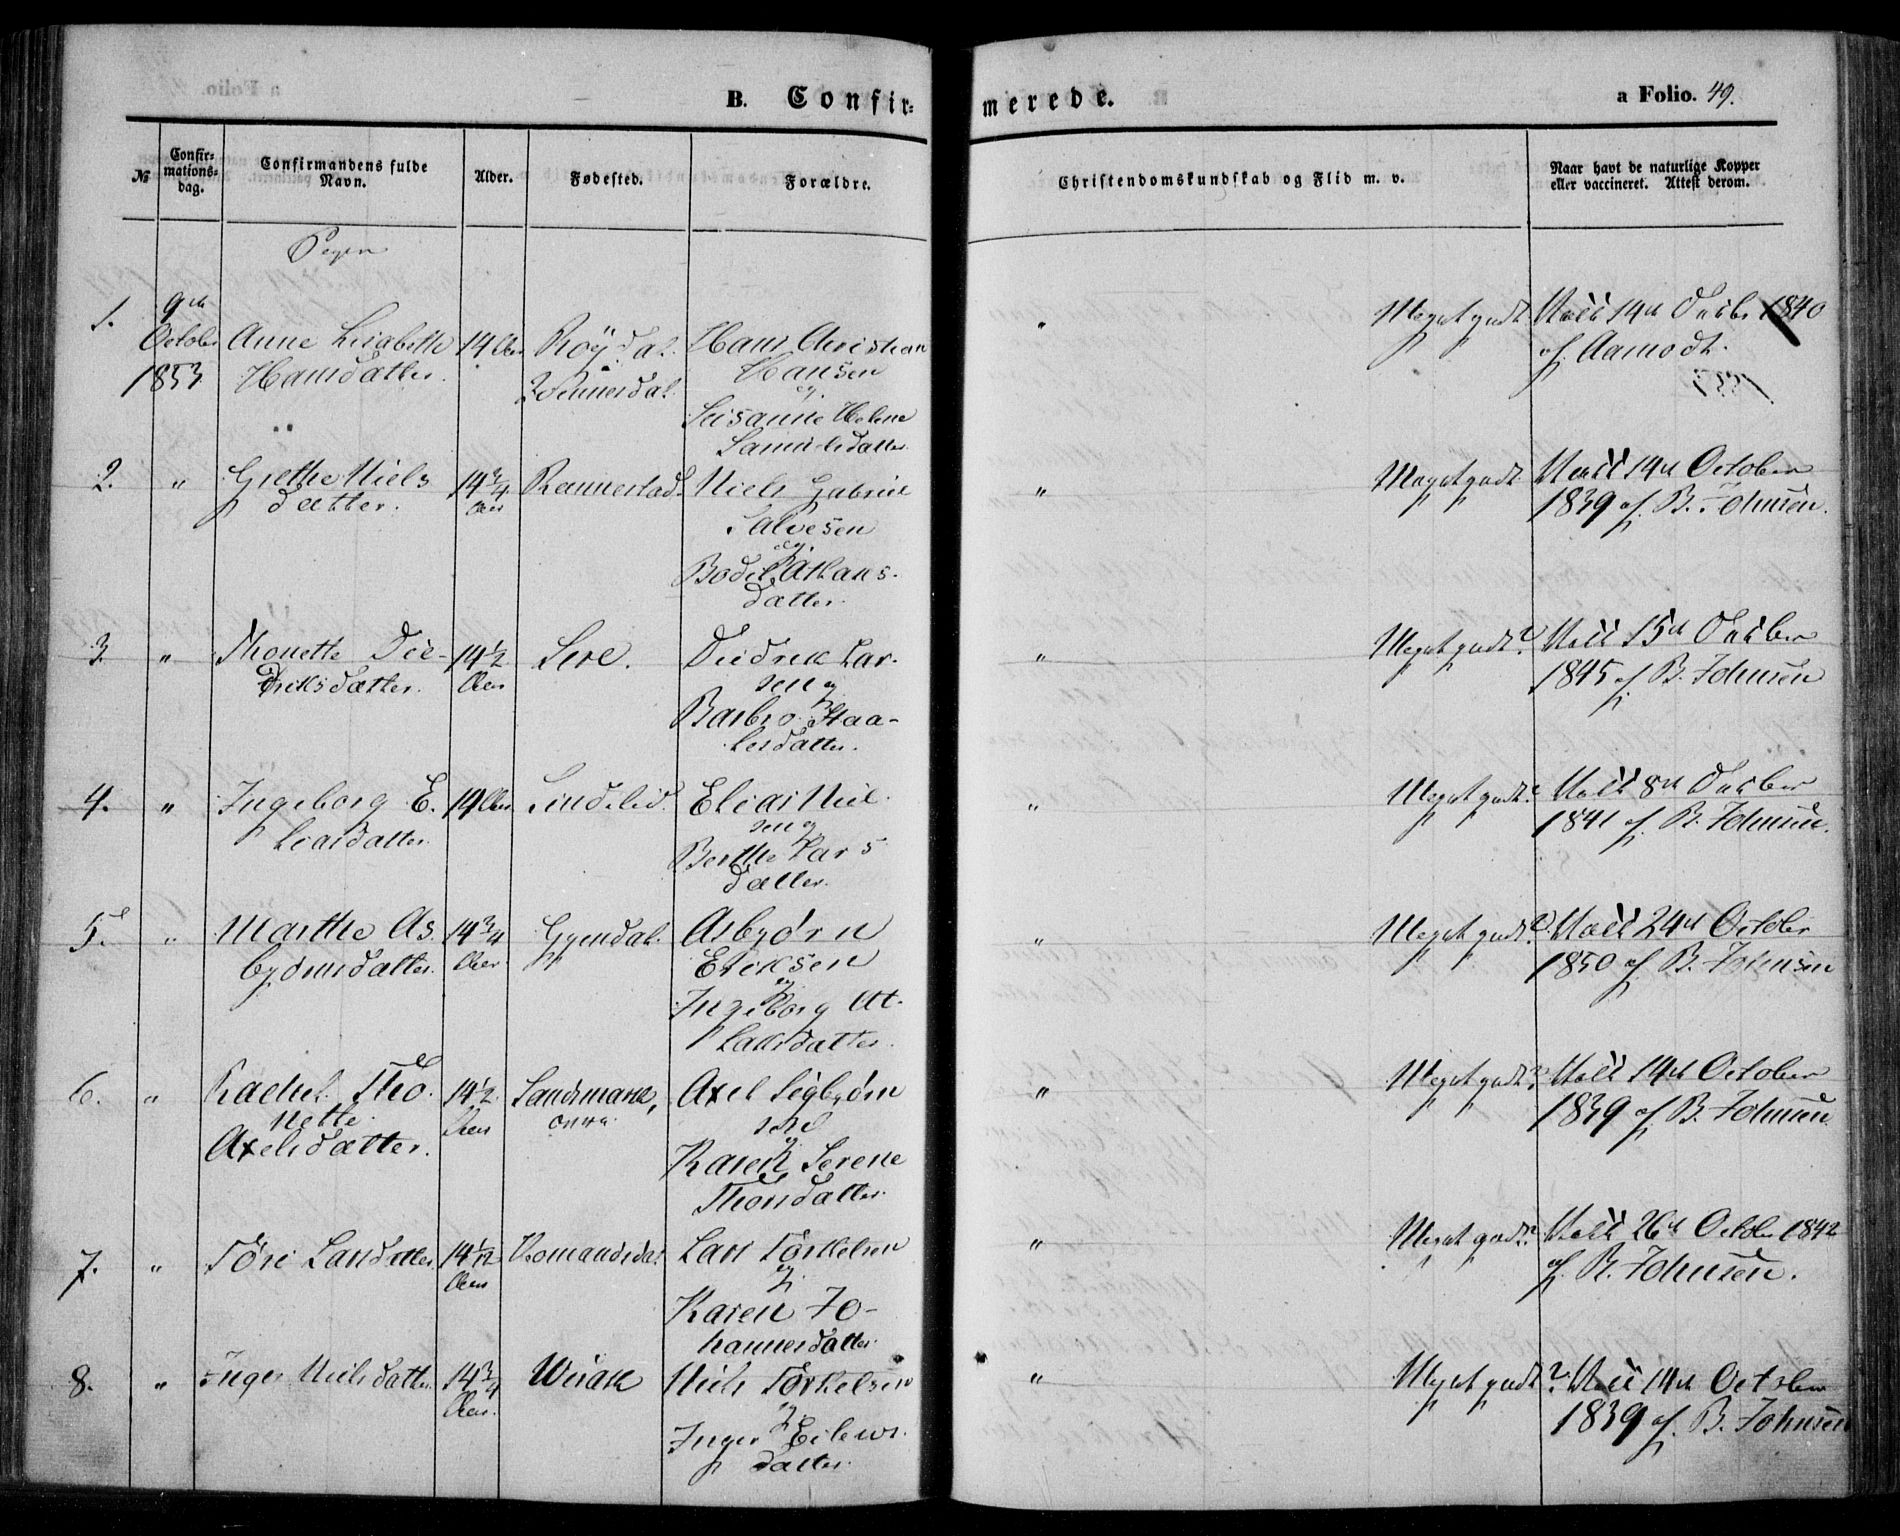 B. Confir=merede.
a Folio. 49.
№
Confir=mations=dag.
Confirmandens fulde Navn.
Alder.
Fødested.
Forældre.
Christendomskundskab og Flid m. v.
Naar havt de naturlige Kopper eller vaccineret. Attest derom.
Piger
1. 9de October 1853
Anne Lisabethe Hansdatter.
14 Aar
Røydal. Vennersdal
Hans Christian Hansen og Susanne Helene Samuelsdatter
"
Meget godt
Vacc 14d October 1840 af Aamodt.
2. "
Grethe Nielsdatter.
14 3/4 Aar
Rannestad.
Niels Gabriel Salvesen og Bodil Atlaksdatter.
"
Meget godt
Vacc 14d October 1839 af B. Johnsen.
3. "
Thonette Diedriksdatter.
14 1/2 Aar
Diedrik Larsen og Barbro Staalesdatter.
"
Meget godt.
Vacc 15d October 1845 af B. Johnsen
4. "
Ingeborg Eliasdatter.
19 Aar
Lindelid.
Elias Nielsen og Berthe Larsdatter.
"
Meget godt.
Vacc 8d October 1841 af B. Johnsen.
5. "
Marthe Asbjørnsdatter.
14 3/4 Aar
Asbjørn Eriksen og Ingeborg Atlaksdatter.
"
Meget godt.
Vacc 24d October 1850 af B. Johnsen
6. "
Rachel Thonette Axelsdatter.
14 1/2 Aar
Axel Sigbjørnsen og Karen Serene Thorsdatter.
"
Meget godt.
Vacc 14d October 1839 af B. Johnsen
7. "
Tøri Larsdatter
14 1/12 Aar
Lars Torkelsen og Karen Johannesdatter.
"
Meget godt.
Vacc 26d October 1842 af B. Johnsen.
8. "
Inger Nielsdatter.
14 3/4 Aar.
Niels Torkelsen og Inger Eilewsdatter.
"
Meget godt.
Vacc 14d October 1839 af B. Johnsen